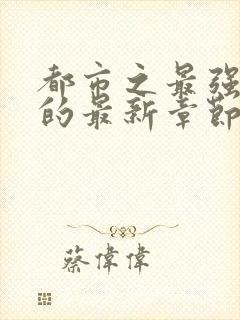 都市之最强
的最新章節
蔡偉偉